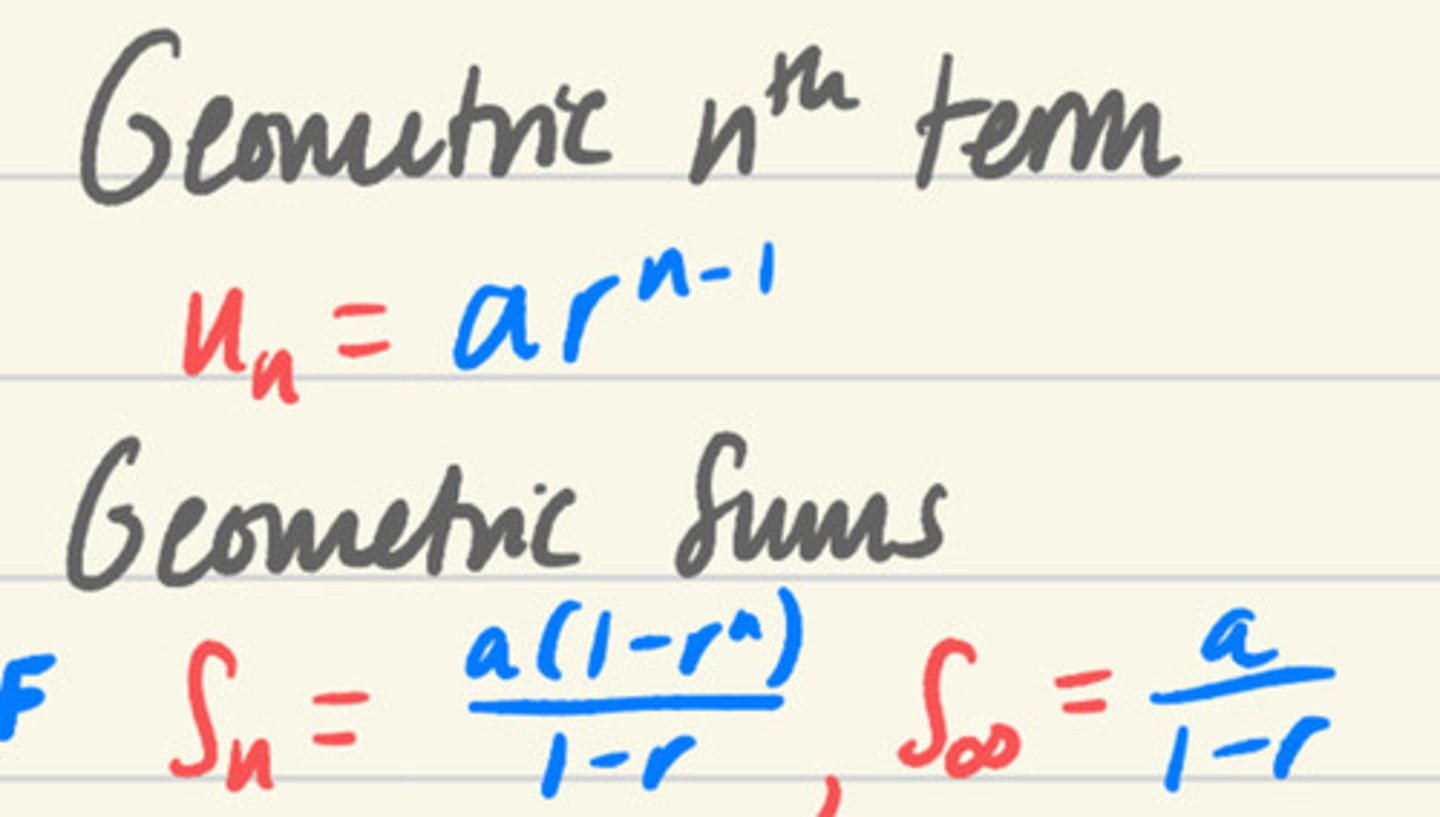 Geometric nᵗʰ term
uₙ = arⁿ⁻¹
Geometric Sums
F Sₙ = a(1-rⁿ)/1-r , S∞ = a/1-r